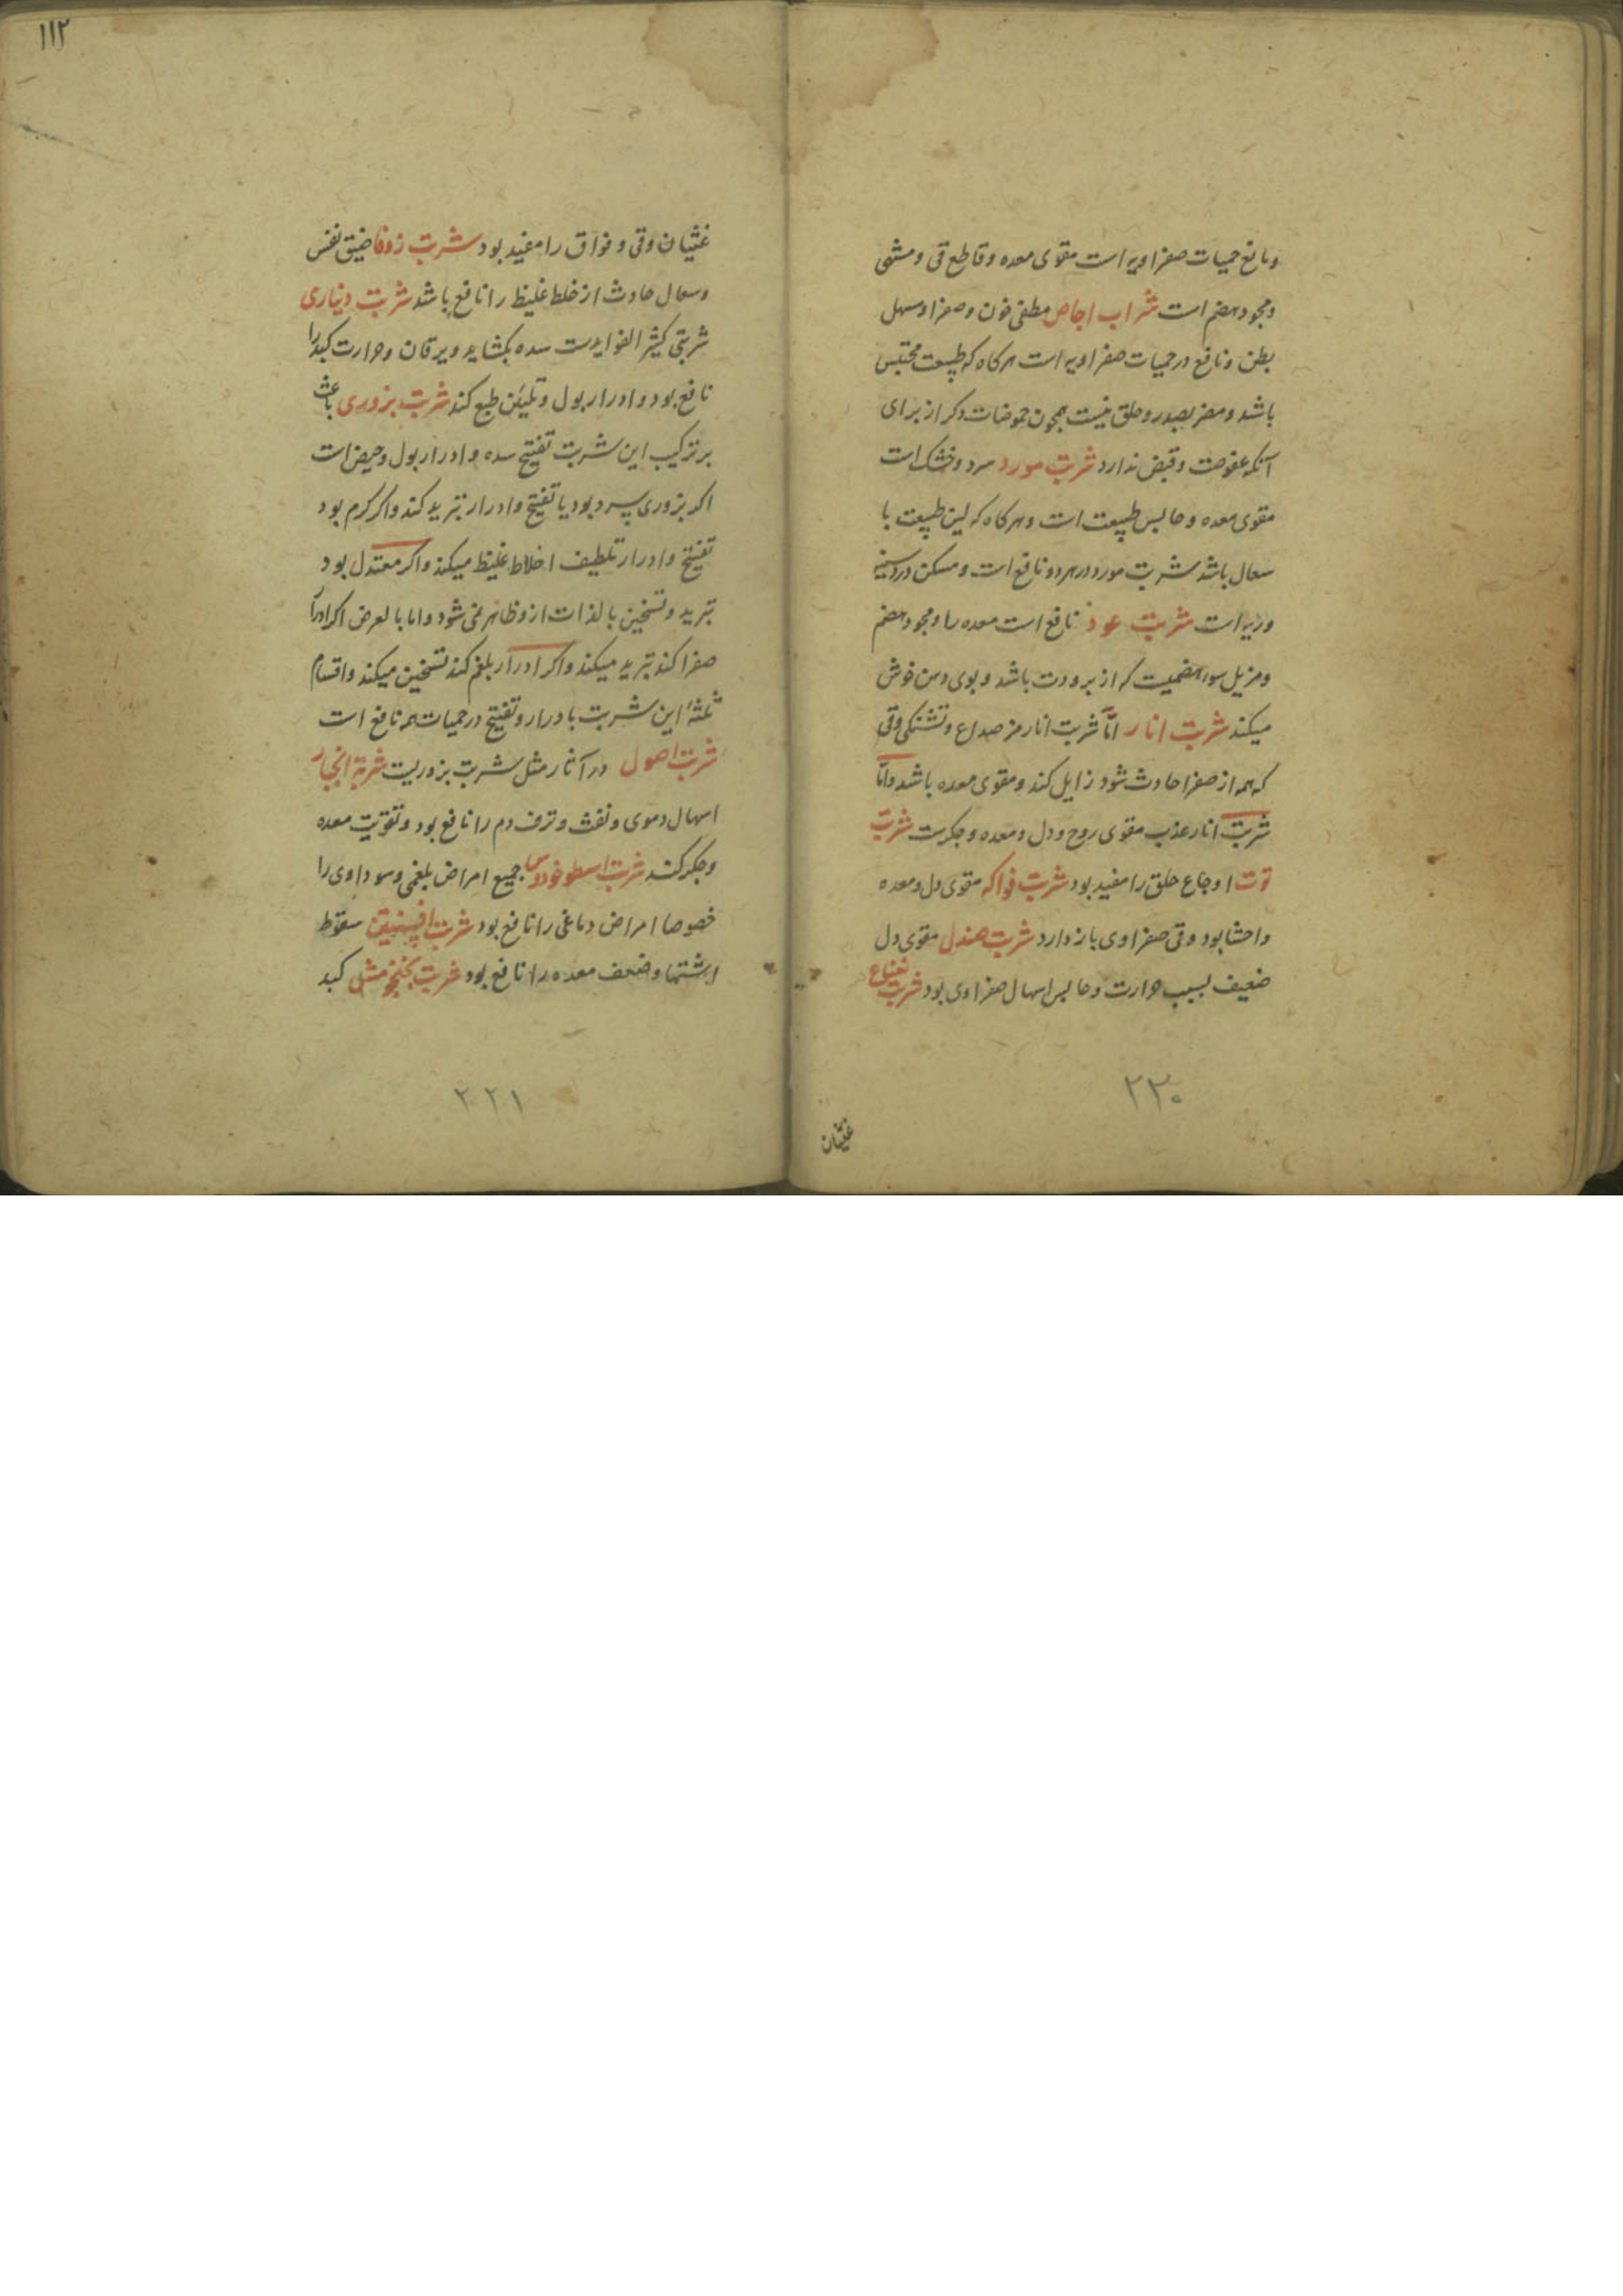 ومانع حمیات صفراویه است مقوی معده و قاطع قی و مشهی
ومجود هضم است شراب اجاص مطفی خون و صفرا و مسهل
بطن و نافع در حمیات صفراویه است هرکاه که طبیعت محتبس
باشد ومضر بصدر و حلق نیست همچون حموضات دکر از برای
آنکه عفوصت و قبض ندارد شربت مورد سرد و خشک است
مقوی معده و حابس طبیعت است و هرکاه که لین طبیعت با
سعال باشد شربت مورد در هر دو نافع است و مسکن درد سینه
وریه است شربت عود نافع است معده را و مجود هضم
ومزیل سوء هضمیست که از برودت باشد و بوی دهن خوش
میکند شربت انار امّا شربت انار مز صداع و تشنکی و قی
که همه از صفرا حادث شود زایل کند و مقوی معده باشد وامّا
شربت انار عذب مقوی روح و دل و معده و جکرست شربت
توت اوجاع حلق را مفید بود شربت فواکه مقوی دل و معده
واحشا بود و قی صفراوی باز دارد شربت صندل مقوی دل
ضعیف بسبب حرارت و حابس اسهال صفراوی بود شربت نعناع
۲۲۰
غثیان
۱۱۲
غثیان و قی و فواق را مفید بود شربت زوفا ضیق نفس
وسعال حادث از خلط غلیظ را نافع باشد شربت دیناری
شربتی کثیر الفوایدست سده بکشاید و یرقان و حرارت کبد را
نافع بود و ادرار بول و تلیین طبع کند شربت بزوری باعث
بر ترکیب این شربت تفتیح سده و ادرار بول و حیض است
اکر بزوری سرد بود با تفتیح و ادرار تبرید کند و اکر کرم بود
تفتیح و ادرار تلطیف اخلاط غلیظ میکند و اکر معتدل بود
تبرید و تسخین بالذات ازو ظاهر نمی شود و اما بالعرض اکر ادرار
صفرا کند تبرید میکند و اکر ادرار بلغم کند تسخین میکند و اقسام
ثلثهٔ این شربت با درار و تفتیح در حمیات هم نافع است
شربت اصول در آثار مثل شربت بزوریست شربة انجبار
اسهال دموی و نفث و نزف دم را نافع بود و تقویت معده
وجکر کند شربت اسطوخودوس جمیع امراض بلغمی و سوداوی را
خصوصا امراض دماغی را نافع بود شربت افسنتین سقوط
اشتها و ضعف معده را نافع بود شربت کبد
۲۲۱